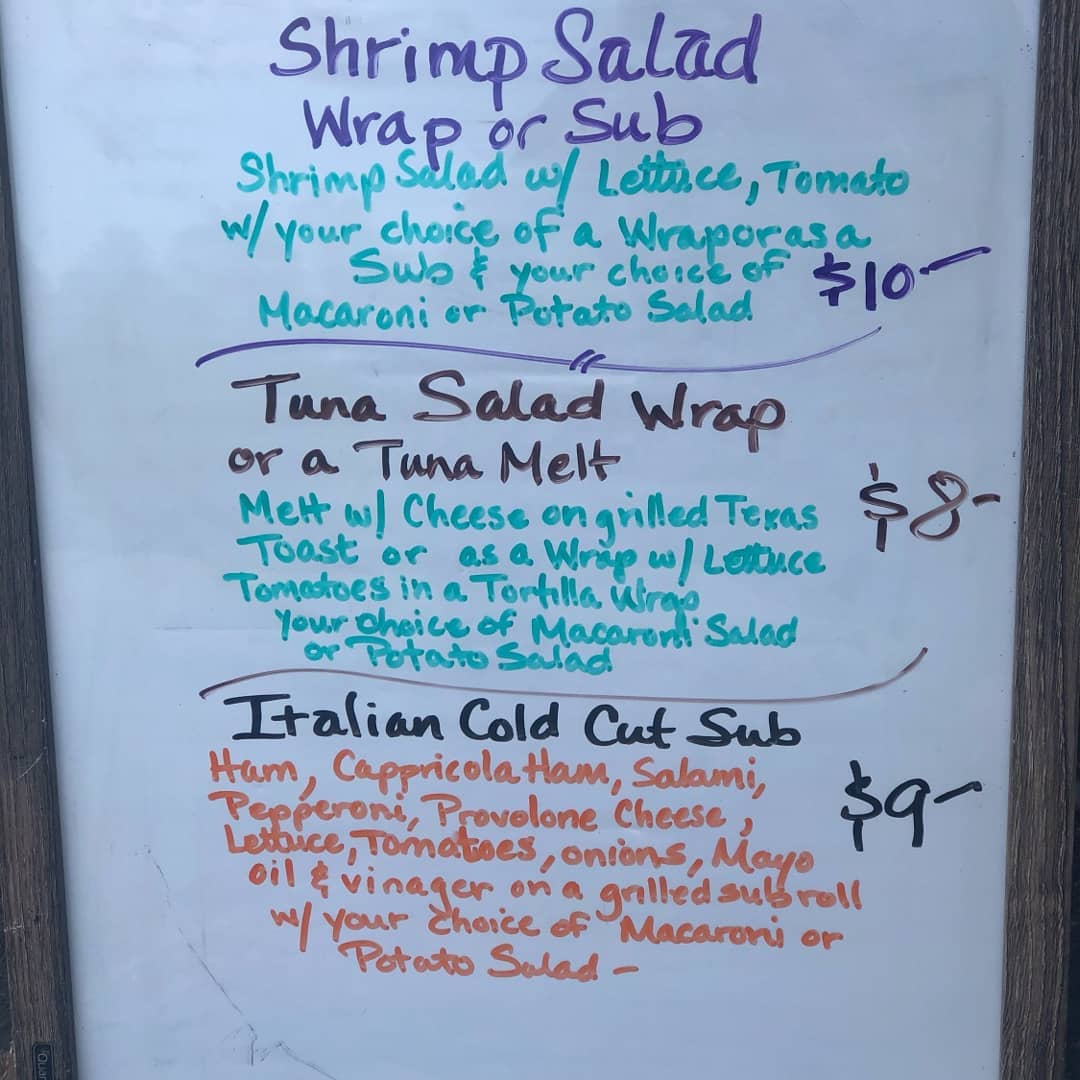 Shrimp Salad
Wrap or Sub
Shrimp Salad w/ Lettuce, Tomato
w/ your choice of a Wrap or as a
Sub & your choice of $10-
Macaroni or Potato Salad
Tuna Salad Wrap
or a Tuna Melt
Melt w/ Cheese on grilled Texas $8-
Toast or as a Wrap w/ Lettuce
Tomatoes in a Tortilla Wrap
Your choice of Macaroni Salad
or Potato Salad
Italian Cold Cut Sub
Ham, Cappricola Ham, Salami,
Pepperoni, Provolone Cheese, $9-
Lettuce, Tomatoes, onions, Mayo
oil & vinager on a grilled sub roll
w/ your choice of Macaroni or
Potato Salad -